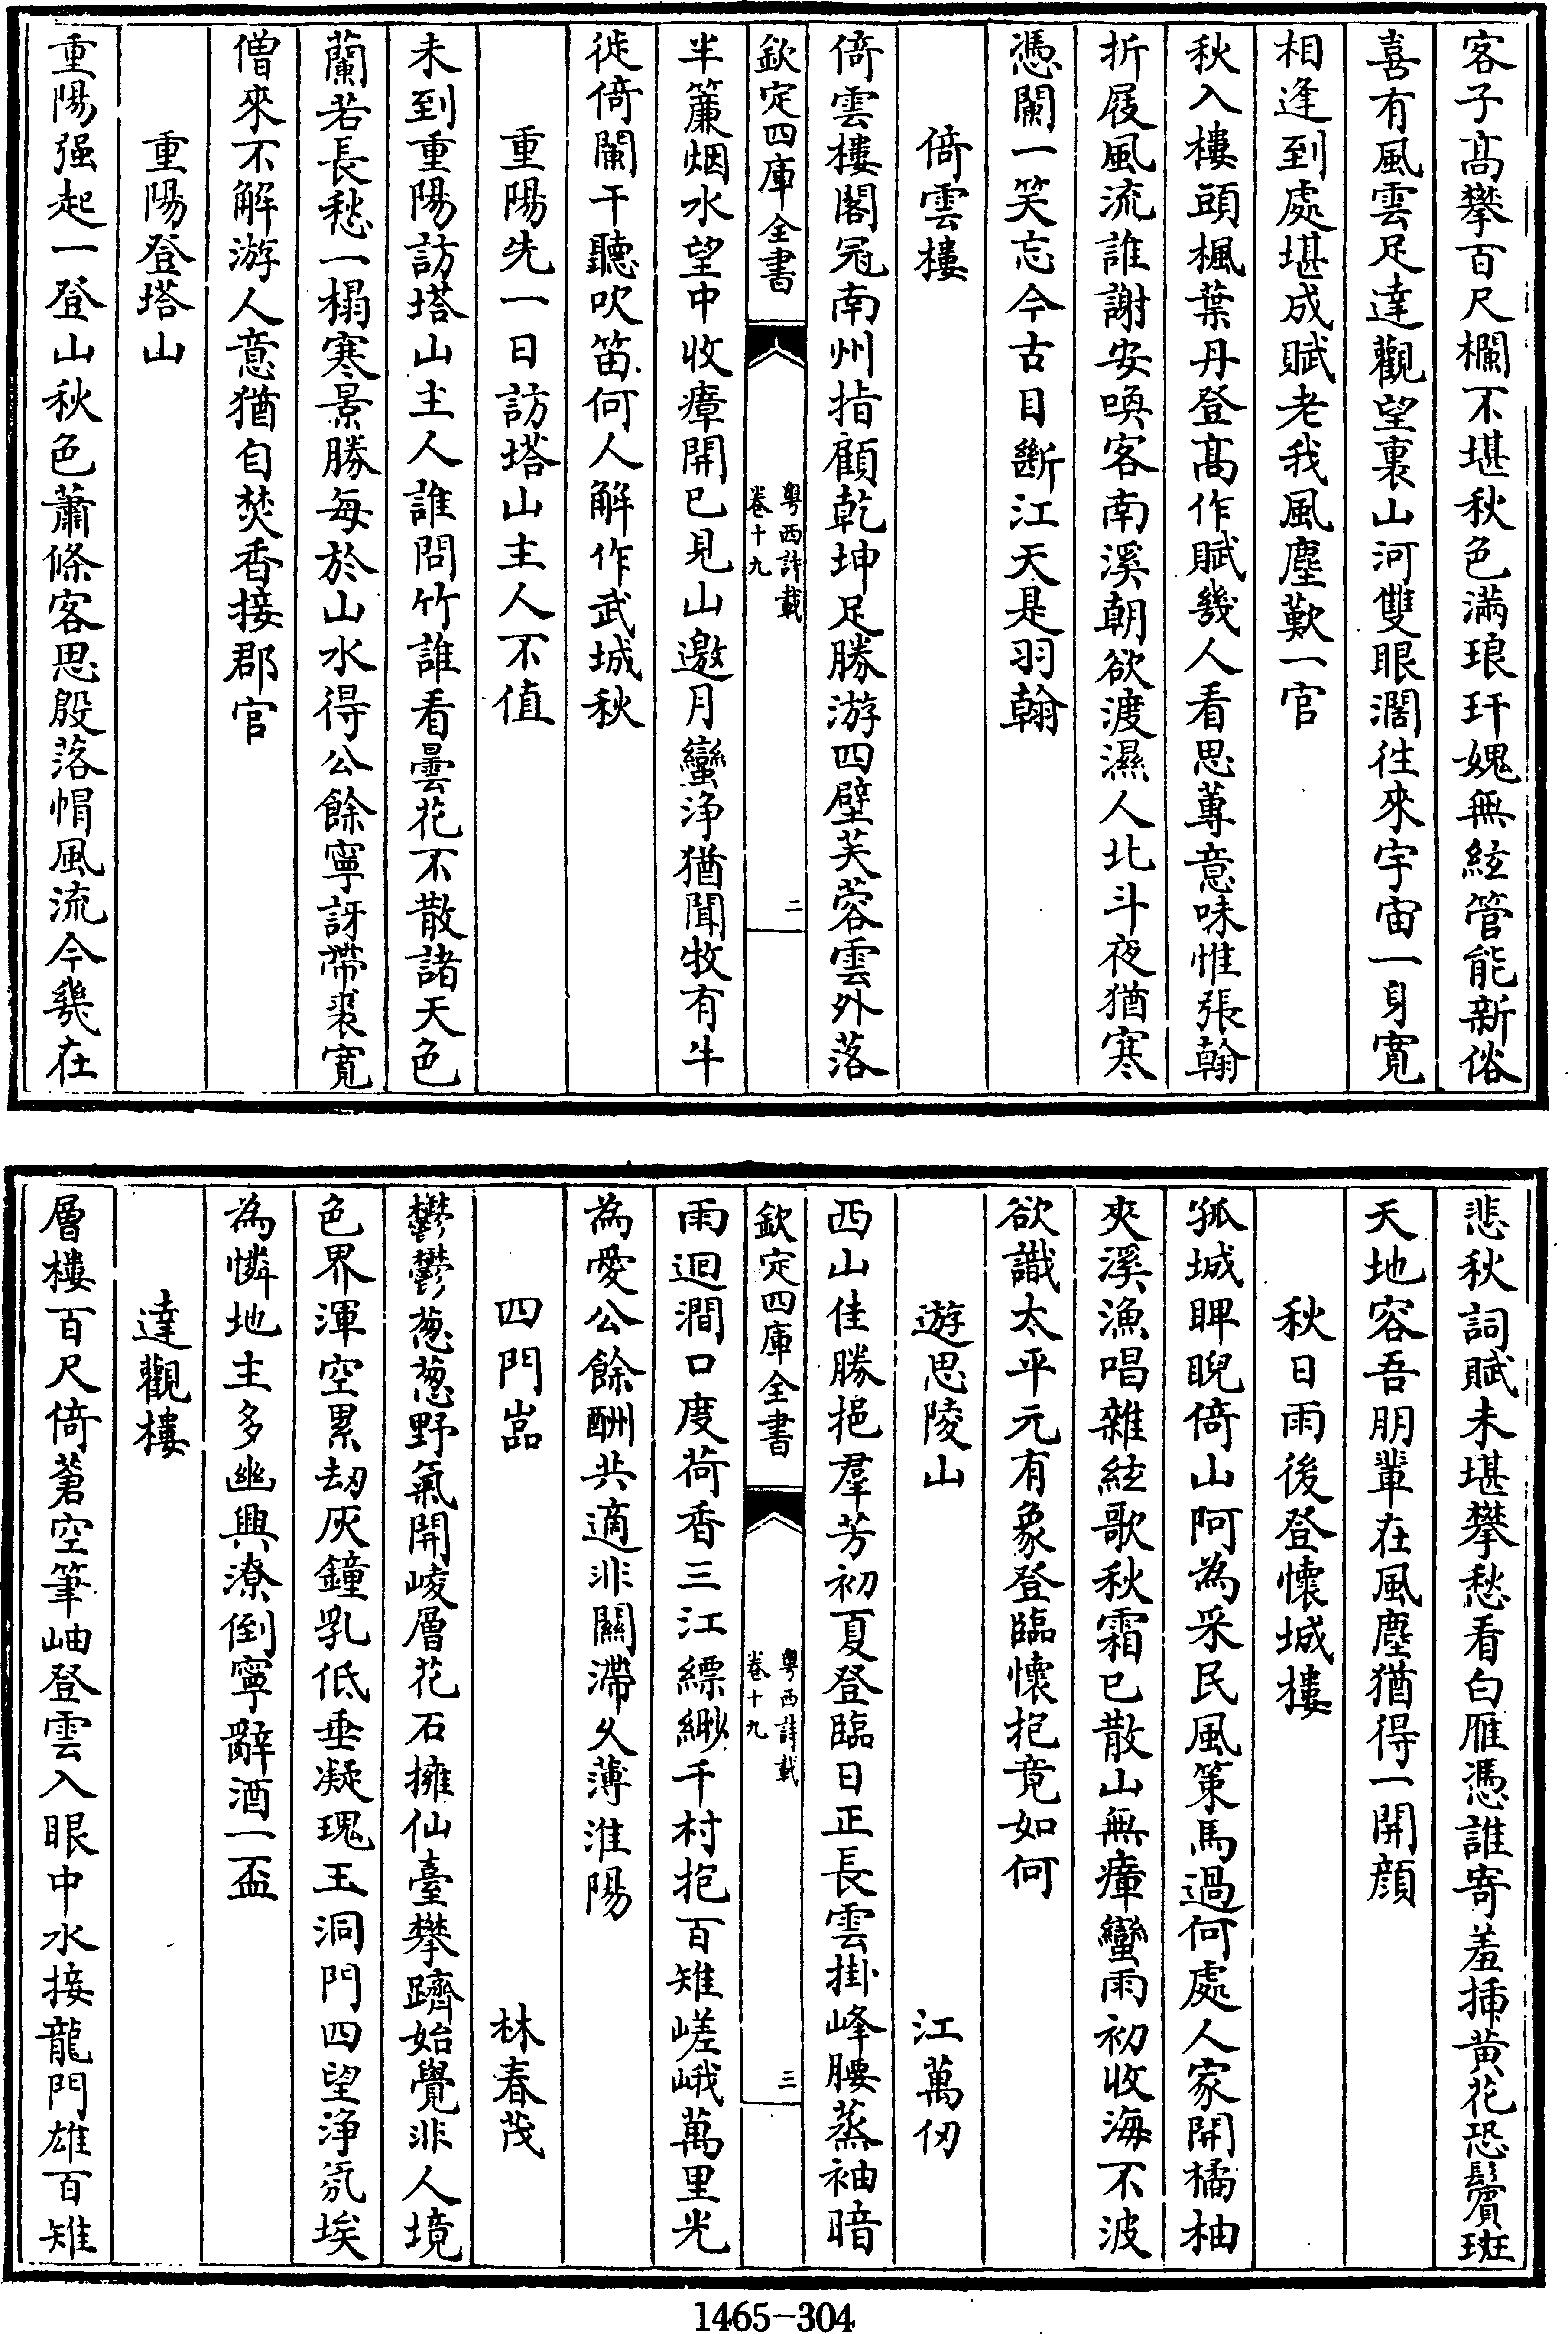 客子髙攀百尺欄不堪秋色滿琅玕媿無絃管能新俗
喜有風雲足達觀望裏山河雙眼濶往來宇宙一身寛
相逢到處堪成賦老我風塵歎一官
秋入樓頭楓葉丹登髙作賦幾人看思蓴意味惟張翰
折屐風流誰謝安喚客南溪朝欲渡濕人北斗夜猶寒
憑闌一笑忘今古目斷江天是羽翰
倚雲樓
倚雲樓閣冠南州指顧乾坤足勝游四壁芙蓉雲外落
欽定四庫全書
粤西詩載
卷十九
二
半簾烟水望中收瘴開已見山邀月蠻浄猶聞牧有牛
徙倚闌干聽吹笛何人解作武城秋
重陽先一日訪塔山主人不值
未到重陽訪塔山主人誰問竹誰看曇花不散諸天色
蘭若長愁一榻寒景勝每於山水得公餘寧訝帶裘寛
僧來不解游人意猶自焚香接郡官
重陽登塔山
重陽强起一登山秋色蕭條客思殷落帽風流今幾在
悲秋詞賦未堪攀愁看白雁憑誰寄羞揷黄花恐鬢斑
天地容吾朋輩在風塵猶得一開顔
秋日雨後登懷城樓
孤城睥睨倚山阿為采民風策馬過何處人家開橘柚
夾溪漁唱雜絃歌秋霜已散山無瘴蠻雨初收海不波
欲識太平元有象登臨懷抱竟如何
遊思陵山
江萬仞
西山佳勝挹羣芳初夏登臨日正長雲掛峰腰蒸袖暗
欽定四庫全書
粤西詩載
卷十九
三
雨迴澗口度荷香三江縹緲千村抱百雉嵯峨萬里光
為愛公餘酬共適非關滯久薄淮陽
四門嵓
林春茂
鬱鬱葱葱野氣開崚層花石擁仙臺攀躋始覺非人境
色界渾空累刼灰鐘乳低垂凝瑰玉洞門四望浄氛埃
為憐地主多幽興潦倒寧辭酒一盃
達觀樓
層樓百尺倚蒼空筆岫登雲入眼中水接龍門雄百雉
1465-304